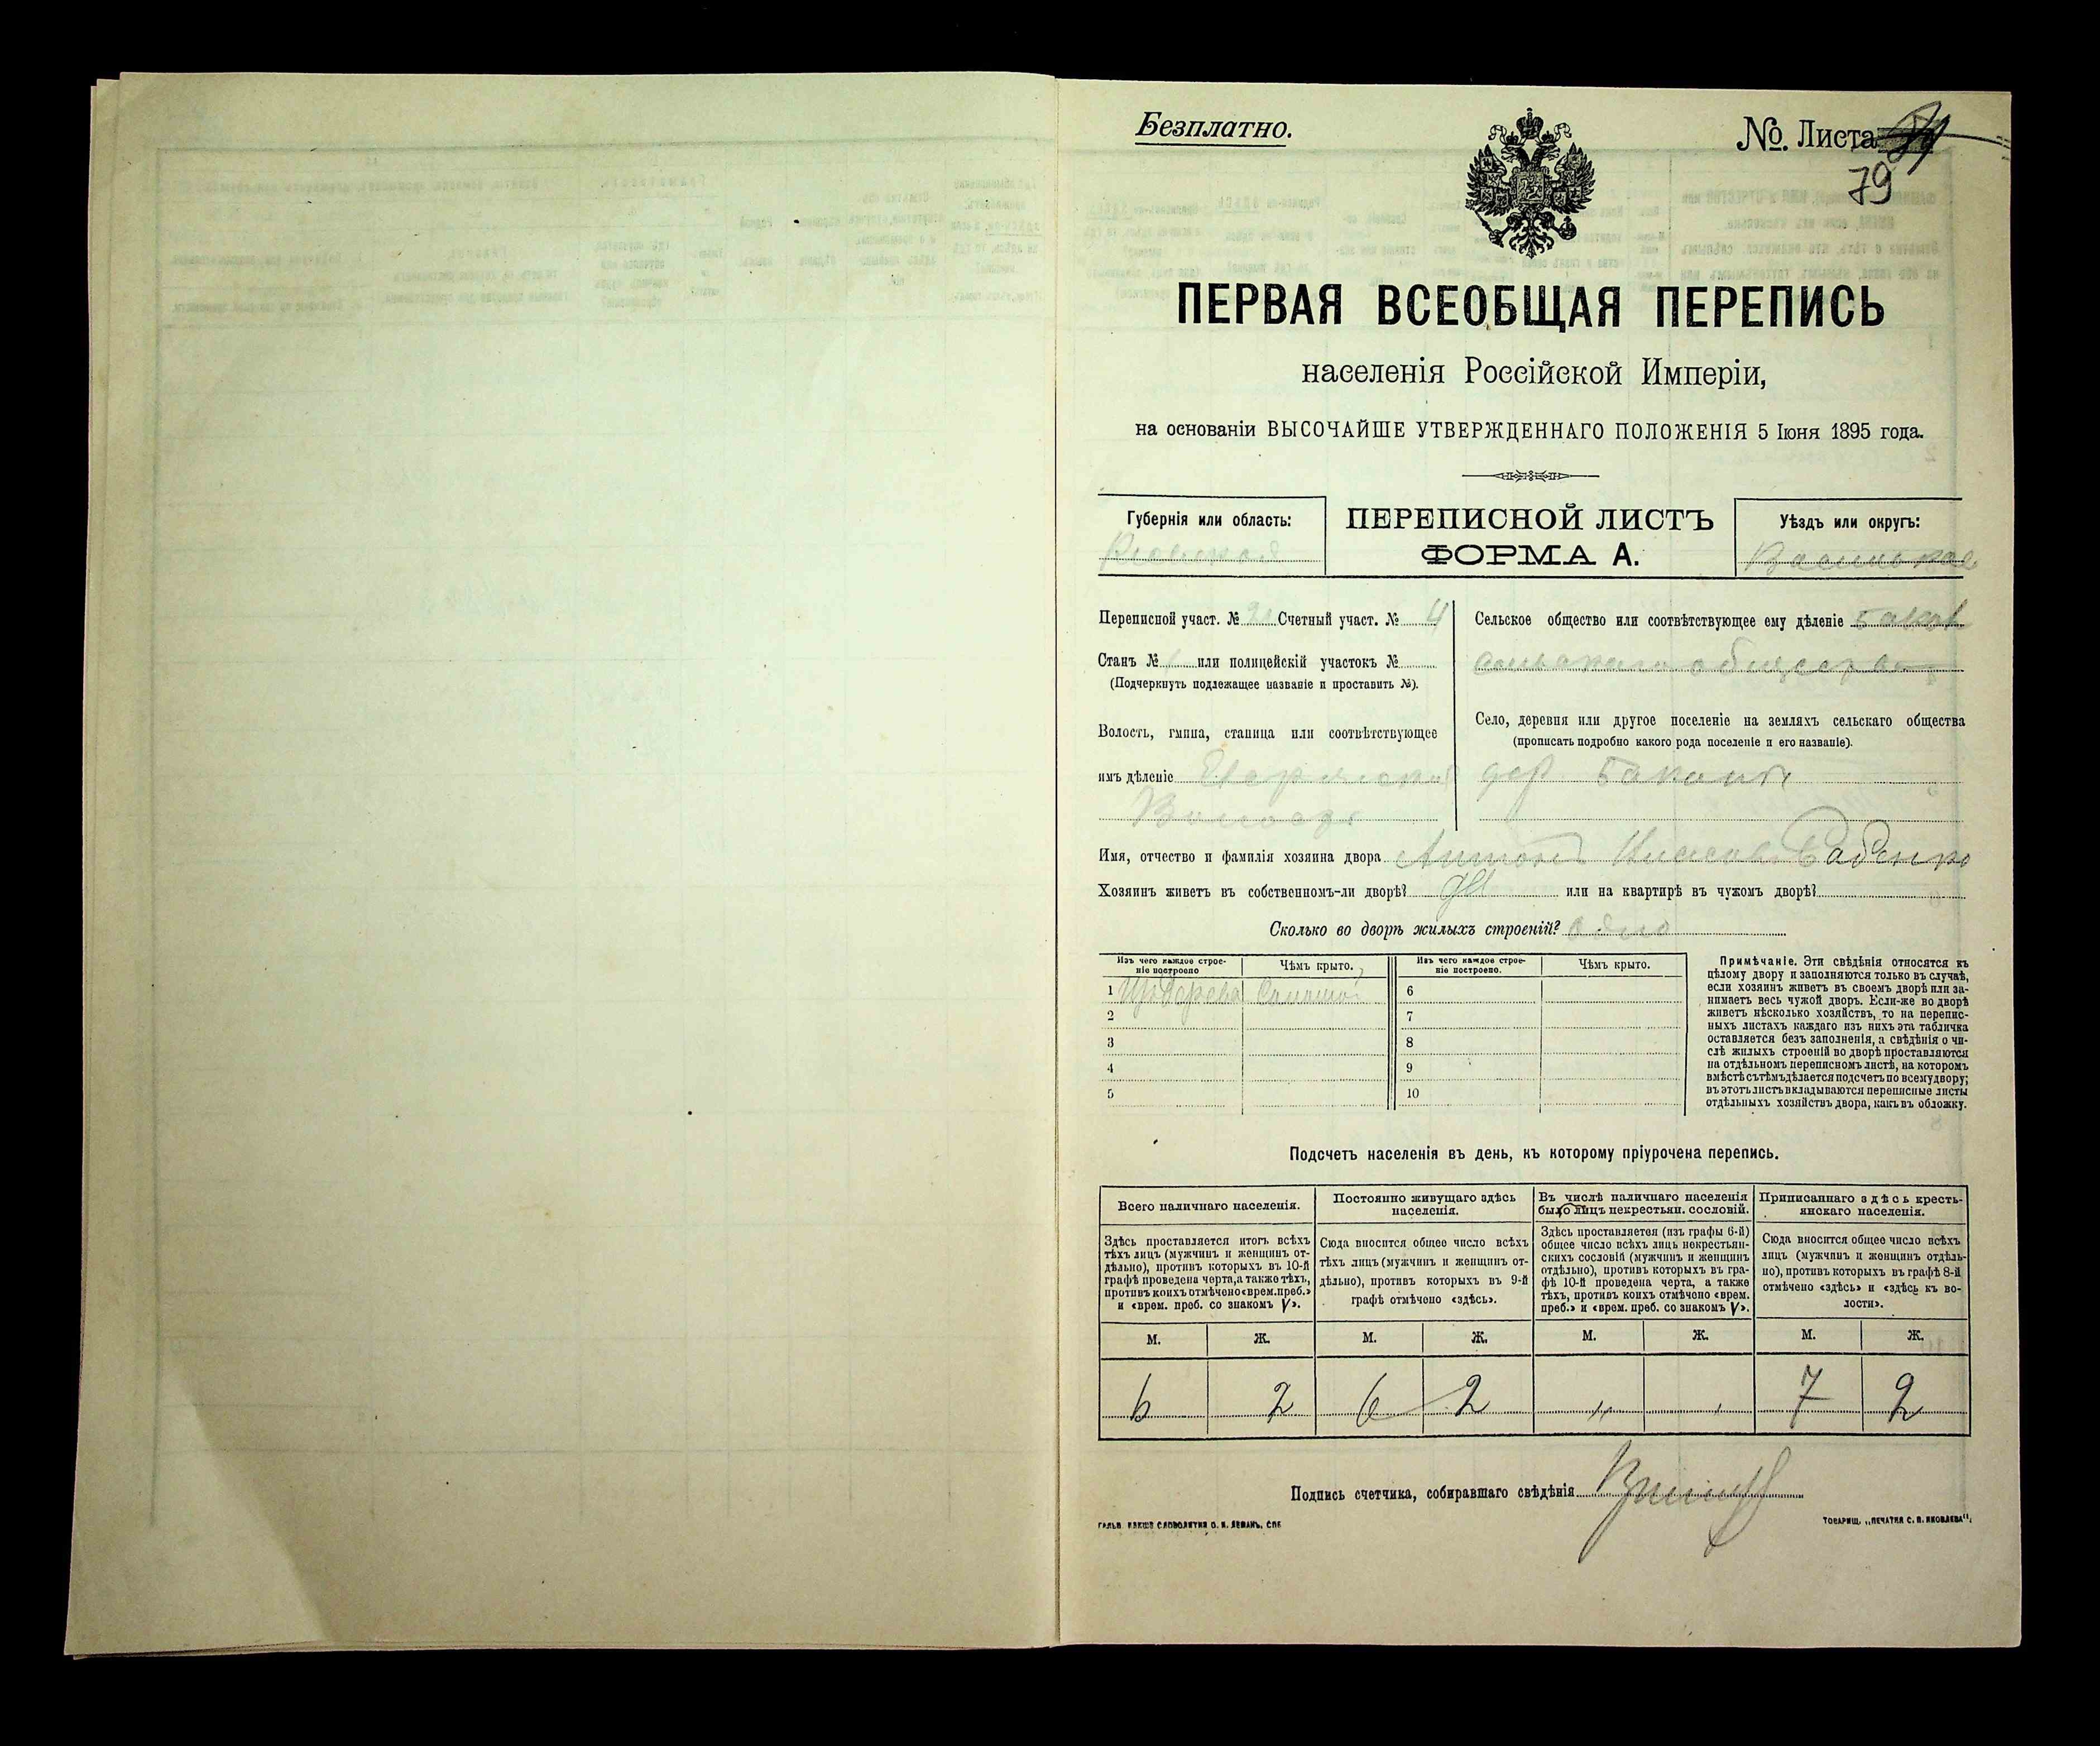 Безплатно.
№. Листа
79
ПЕРВАЯ ВСЕОБЩАЯ ПЕРЕПИСЬ
населенія Россійской Имперіи,
на основаніи ВЫСОЧАЙШЕ УТВЕРЖДЕННАГО ПОЛОЖЕНІЯ 5 Іюня 1895 года.
Губернія или область:
Кіевская
ПЕРЕПИСНОЙ ЛИСТЪ
ФОРМА А.
Уѣздъ или округъ:
Переписной участ. № Счетный участ. № 4
Станъ № или полицейскій участокъ №
(Подчеркнуть подлежащее названіе и проставить №).
Волость, гмина, станица или соотвѣтствующее
имъ дѣленіе
Сельское общество или соотвѣтствующее ему дѣленіе
общества
Село, деревня или другое поселеніе на земляхъ сельскаго общества
(прописать подробно какого рода поселеніе и его названіе).
дер
Имя, отчество и фамилія хозяина двора Антонъ
Хозяинъ живетъ въ собственномъ-ли дворѣ? да или на квартирѣ въ чужомъ дворѣ?
Сколько во дворѣ жилыхъ строеній? одно
Изъ чего каждое строе-
ніе построено
Чѣмъ крыто.
Изъ чего каждое строе-
ніе построено.
Чѣмъ крыто.
1 Изъ дерева Соломой
2
3
4
5
6
7
8
9
10
Примѣчаніе. Эти свѣдѣнія относятся къ
цѣлому двору и заполняются только въ случаѣ,
если хозяинъ живетъ въ своемъ дворѣ или за-
нимаетъ весь чужой дворъ. Если-же во дворѣ
живетъ нѣсколько хозяйствъ, то на перепис-
ныхъ листахъ каждаго изъ нихъ эта табличка
оставляется безъ заполненія, а свѣдѣнія о чи-
слѣ жилыхъ строеній во дворѣ проставляются
на отдѣльномъ переписномъ листѣ, на которомъ
вмѣстѣ съ тѣмъ дѣлается подсчетъ по всему двору;
въ этотъ листъ вкладываются переписные листы
отдѣльныхъ хозяйствъ двора, какъ въ обложку.
Подсчетъ населенія въ день, къ которому пріурочена перепись.
Всего наличнаго населенія.
Здѣсь проставляется итогъ всѣхъ
тѣхъ лицъ (мужчинъ и женщинъ от-
дѣльно), противъ которыхъ въ 10-й
графѣ проведена черта, а также тѣхъ,
противъ коихъ отмѣчено «врем. преб.»
и «врем. преб. со знакомъ V».
Постоянно живущаго здѣсь
населенія.
Сюда вносится общее число всѣхъ
тѣхъ лицъ (мужчинъ и женщинъ от-
дѣльно), противъ которыхъ въ 9-й
графѣ отмѣчено «здѣсь».
Въ числѣ наличнаго населенія
было лицъ некрестьян. сословій.
Здѣсь проставляется (изъ графы 6-й)
общее число всѣхъ лицъ некрестьян-
скихъ сословій (мужчинъ и женщинъ
отдѣльно), противъ которыхъ въ гра-
фѣ 10-й проведена черта, а также
тѣхъ, противъ коихъ отмѣчено «врем.
преб.» и «врем. преб. со знакомъ V».
Приписаннаго здѣсь кресть-
янскаго населенія.
Сюда вносится общее число всѣхъ
лицъ (мужчинъ и женщинъ отдѣль-
но), противъ которыхъ въ графѣ 8-й
отмѣчено «здѣсь» и «здѣсь къ во-
лости».
М. Ж. М. Ж. М. Ж. М. Ж.
6 2 6 2 " " 7 2
Подпись счетчика, собиравшаго свѣдѣнія
ТОВАРИЩ. „ПЕЧАТНЯ С. П. ЯКОВЛЕВА".